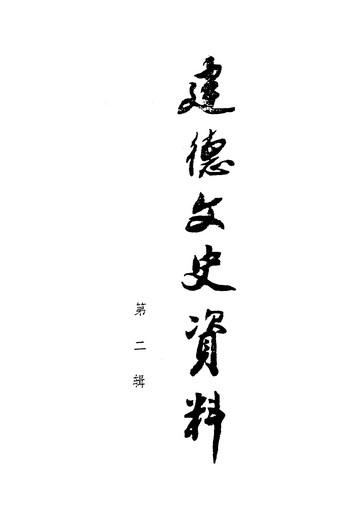 建德文史資料
第二辑